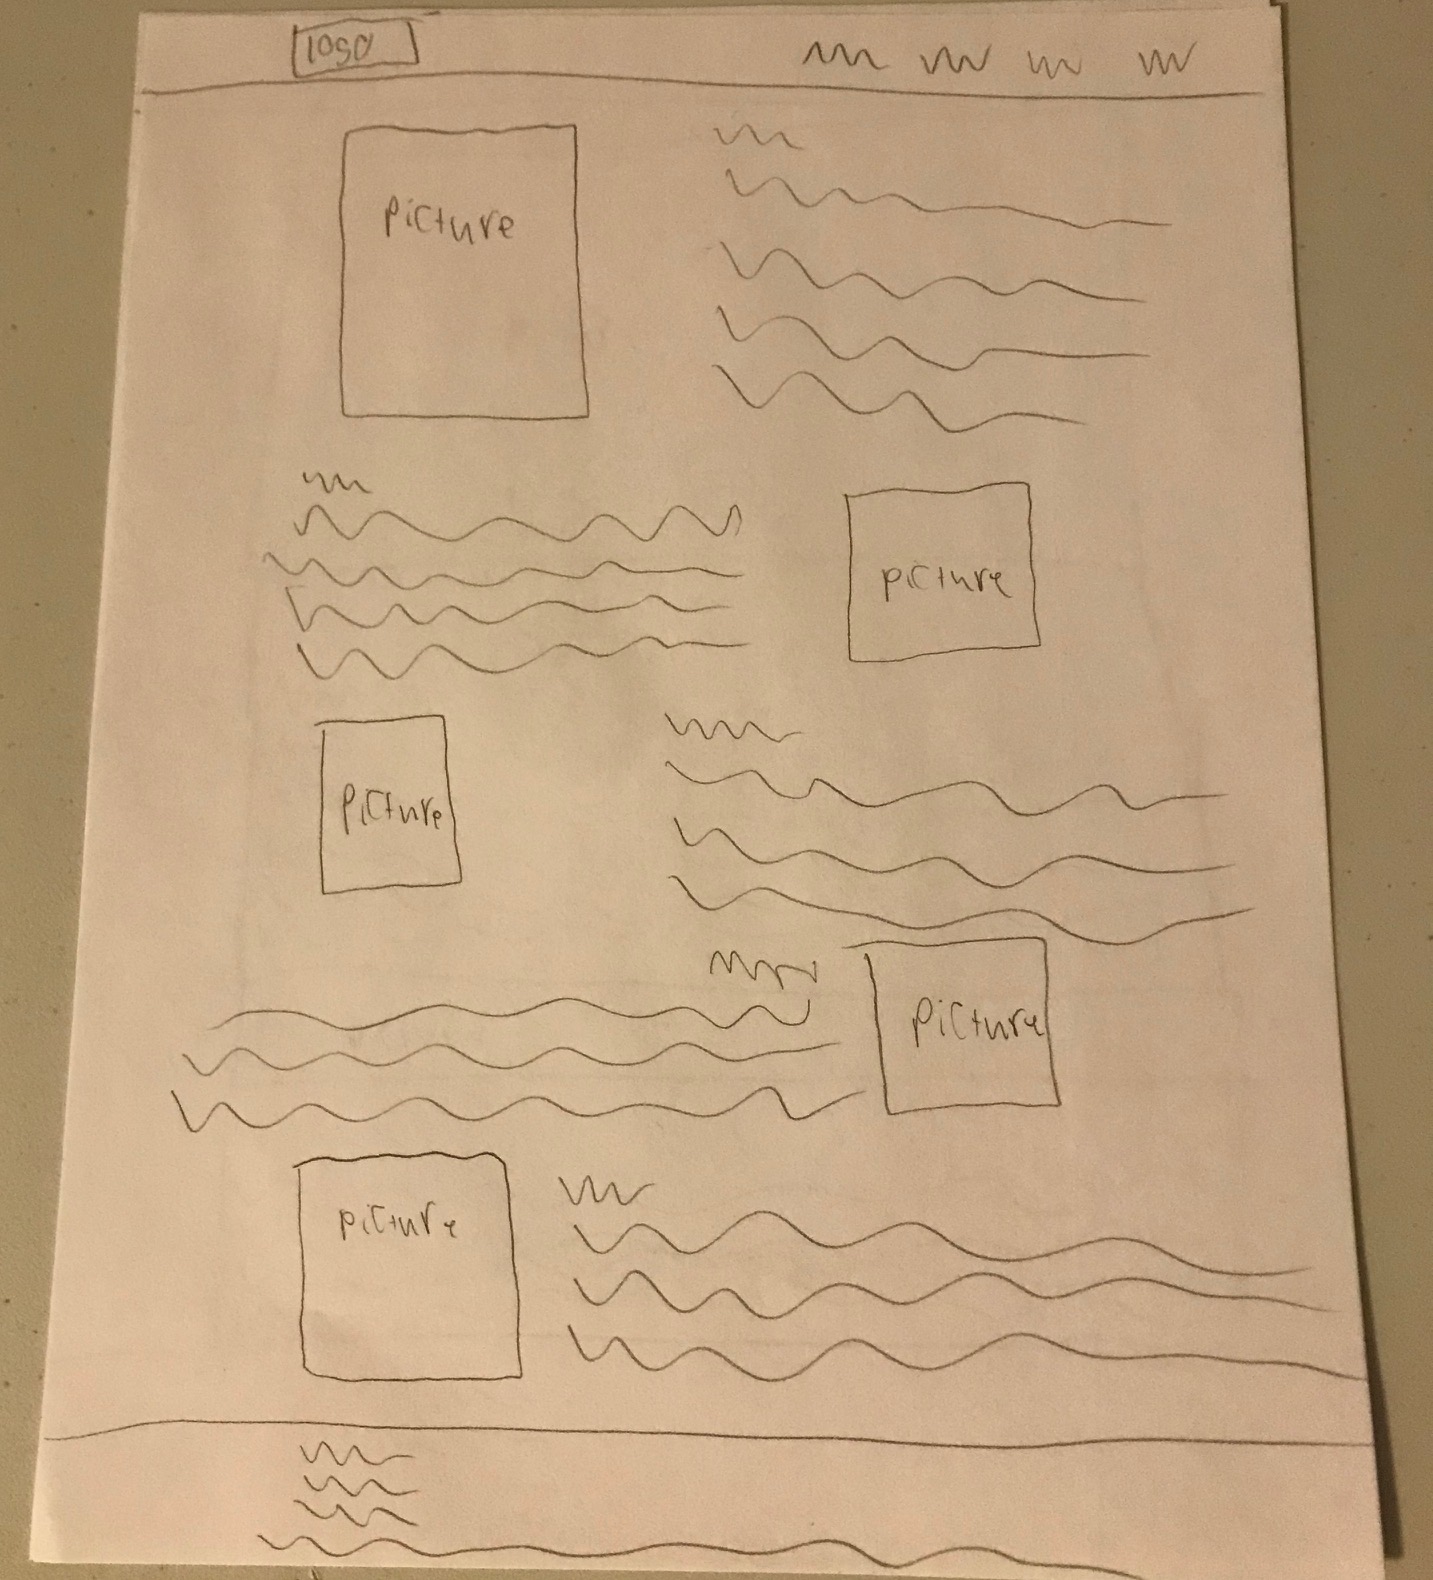 logo
picture
picture
picture
picture
picture